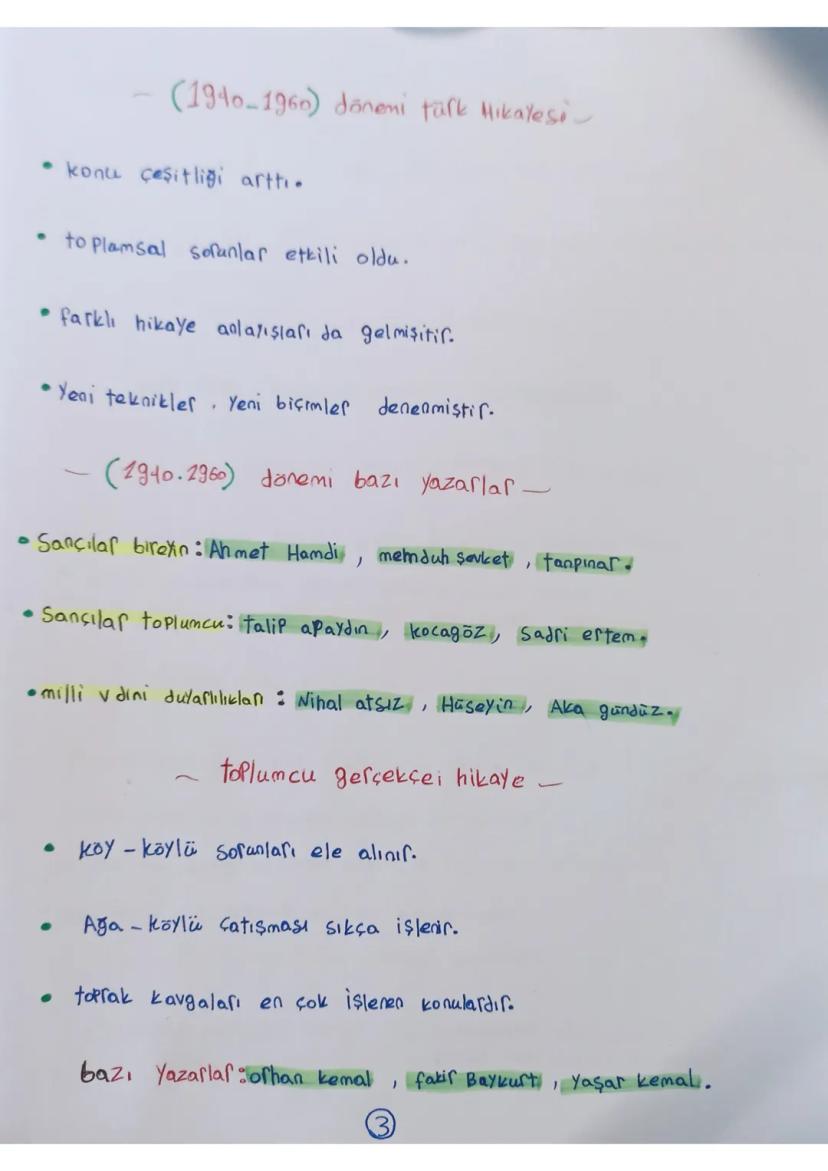 - (1940-1960) dönemi türk Hikayesi -
• konu çeşitliği arttı.
• toplamsal sorunlar etkili oldu.
• farklı hikaye anlayışları da gelmişitir.
• Yeni teknikler, yeni biçimler denenmiştir.
- (1940.1960) dönemi bazı yazarlar -
• Sançılar bireyin: Ahmet Hamdi, memduh şevket, tanpınar.
• Sançılar toplumcu: talip apaydın, kocagöz, Sadri ertem.
• milli v dini duyarlılıkları: Nihal atsız, Hüseyin, Aka gündüz.
- toplumcu gerçekçei hikaye -
• köy - köylü sorunları ele alınır.
• Ağa - köylü çatışması sıkça işlenir.
• toprak kavgaları en çok işlenen konulardır.
bazı yazarlar: orhan kemal, fakir Baykurt, yaşar kemal.
3